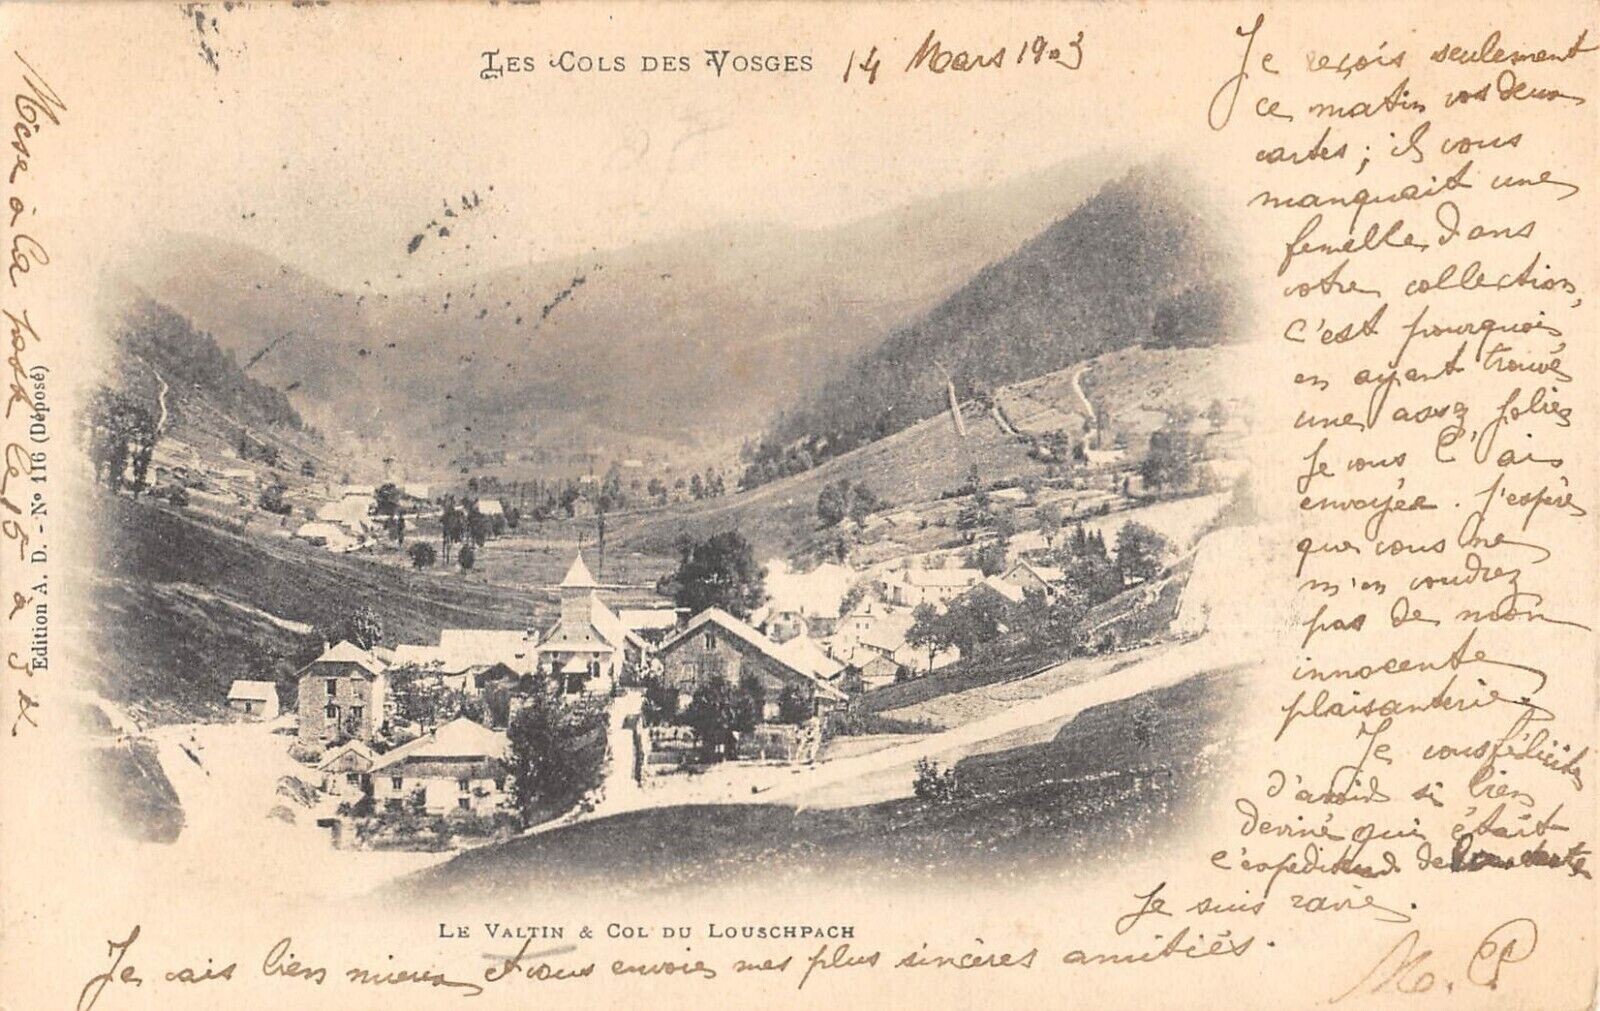 LES COLS DES VOSGES
14 Mars 1903
Je reçois seulement
ce matin vos deux
cartes; il vous
manquait une
femelle dans
votre collection,
c'est pourquoi
en ayant trouvé
une assez jolie
je vous l'ai
envoyée. J'espère
que vous ne
m'en voudrez
pas de mon
innocente
plaisanterie.
Je vous félicite
d'avoir si bien
deviné qui était
l'expéditeur de
Je suis ravie.
Je vais bien mieux et vous envoie mes plus sincères amitiés.
M. P.
LE VALTIN & COL DU LOUSCHPACH
Edition A. D. - N° 116 (Déposé)
Mise à la poste le 15 à 3 h.